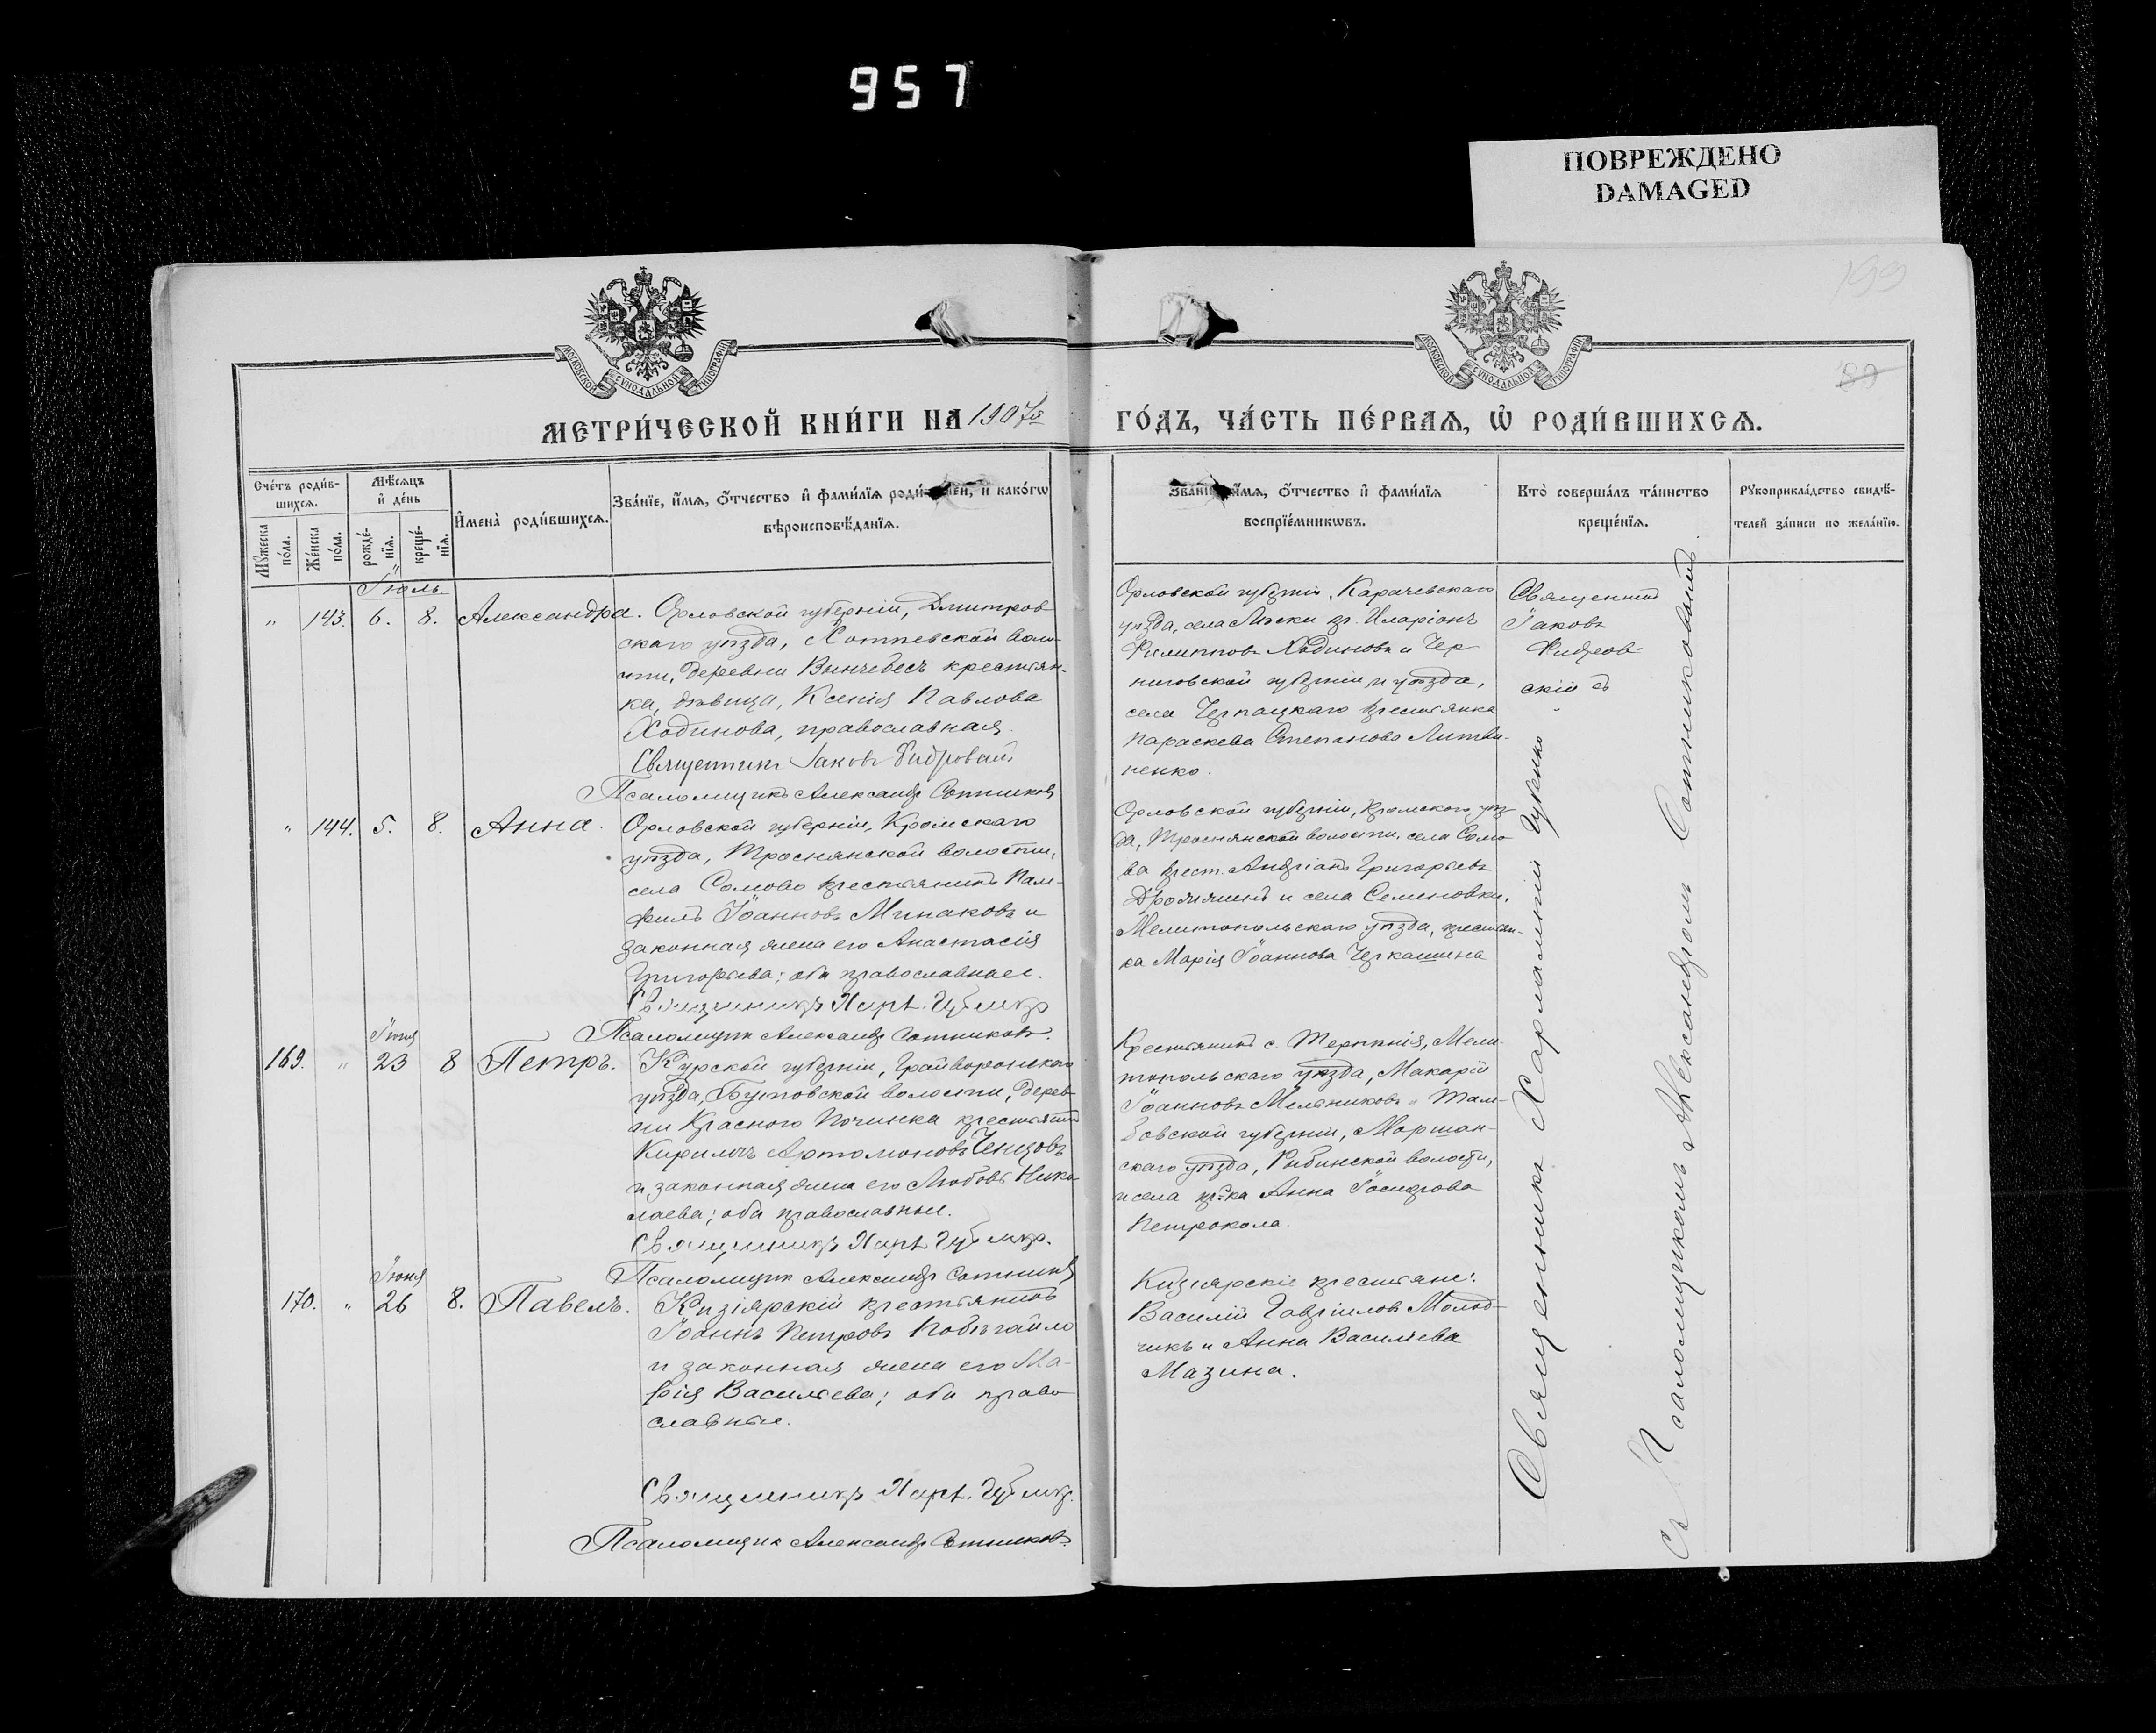 957
ПОВРЕЖДЕНО
DAMAGED
199
89
МОСКОВСКОЙ СѴНОДАЛЬНОЙ ТИПОГРАФІИ
МОСКОВСКОЙ СѴНОДАЛЬНОЙ ТИПОГРАФІИ
МЕТРИ́ЧЕСКОЙ КНИ́ГИ НА 1907й
ГО́ДЪ, ЧА́СТЬ ПЕ́РВАѦ, Ѡ҆ РОДИ́ВШИХСѦ.
Сче́тъ роди́в-
шихсѧ.
Мꙋ́жеска
по́ла.
Же́нска
по́ла.
Мѣ́сѧцъ
и҆ де́нь
рожде́-
нїѧ.
креще́-
нїѧ.
И҆мена̀ роди́вшихсѧ.
Зва́нїе, и҆́мѧ, ѻ҆́тчество и҆ фами́лїѧ роди́ и҆ како́гѡ
вѣроисповѣ́данїѧ.
и҆́мѧ, ѻ҆́тчество и҆ фами́лїѧ
воспрїе́мникѡвъ.
Кто̀ соверша́лъ та́инство
креще́нїѧ.
Рꙋкоприкла́дство свидѣ́-
телей за́писи по жела́нїю.
Іюль
„ 143. 6. 8. Александра.
Орловской губерніи, Дмитров
скаго уѣзда, воло-
сти, деревни крестьян-
ка, дѣвица, Ксенія Павлова
Ходинова, православная.
Священникъ Іаковъ
Псаломщикъ Александръ Сотников
Орловской губерніи, Карачевскаго
уѣзда, села кр. Иларіонъ
Филипповъ Ходиновъ и Чер
ниговской губерніи и уѣзда,
села крестьянка
Параскева Степанова Литви-
ненко.
Священник
Іаковъ
скій съ
„ 144. 5. 8. Анна.
Орловской губерніи, Кромскаго
уѣзда, Троснянской волости,
села Сомово крестьянинъ Пам-
филъ Іоанновъ Минаковъ и
законная жена его Анастасія
Григорьева; оба православные.
Священникъ Харл.
Псаломщик Александр Сотников.
Орловской губерніи, Кромского уѣз
да, Троснянской волости, села Сомо
ва крест. Андріанъ Григорьевъ
и села Семеновки,
Мелитопольскаго уѣзда, крестьян-
ка Марія Іоаннова Черкашина
Іюня
169. „ 23 8 Петръ.
Курской губерніи, Грайворонскаго
уѣзда, волости, дерев
ни Краснаго Починка крестьянин
Кириллъ Автомоновъ Ченцовъ
и законная жена его Любовь Нико
лаева; оба православные.
Священникъ Харл.
Псаломщик Александр Сотников
Крестьянинъ с. Терпѣнія, Мели-
топольскаго уѣзда, Макарій
Іоанновъ Мельниковъ и Там-
бовской губерніи, Моршан-
скаго уѣзда, Рыбинской волости,
и села кр-ка Анна Іосифова
Іюня
170. „ 26 8. Павелъ.
Кизіярскій крестьянинъ
Іоаннъ Петровъ Побѣгайло
и законная жена его Ма-
рія Васильева; оба право
славные.
Священникъ Харл.
Псаломщик Александр Сотников.
Кизіярскіе крестьяне:
Василій Гавріиловъ Молод-
чикъ и Анна Васильева
Мазина.
Священникъ Харлампій
съ Псаломщикомъ Александромъ Сотниковымъ.